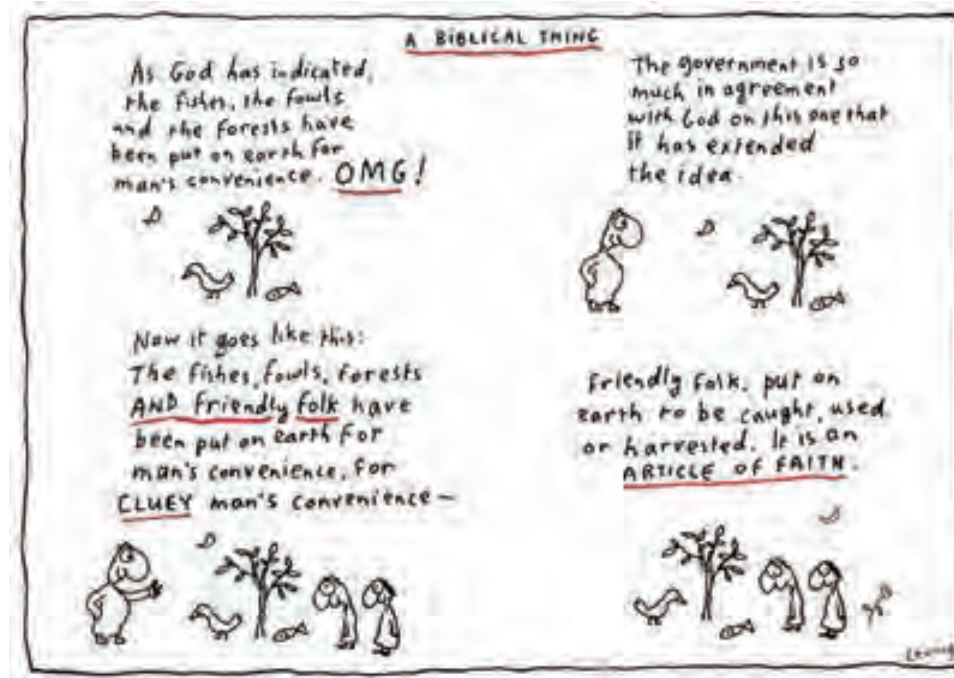 A BIBLICAL THING
As God has indicated,
the fishes, the fowls
and the forests have
been put on earth for
man's convenience. OMG!
The government is so
much in agreement
with God on this one that
it has extended
the idea.
Now it goes like this:
The fishes, fowls, forests
AND friendly folk have
been put on earth for
man's convenience, for
CLUEY man's convenience—
Friendly folk, put on
earth to be caught, used
or harvested. It is an
ARTICLE OF FAITH.